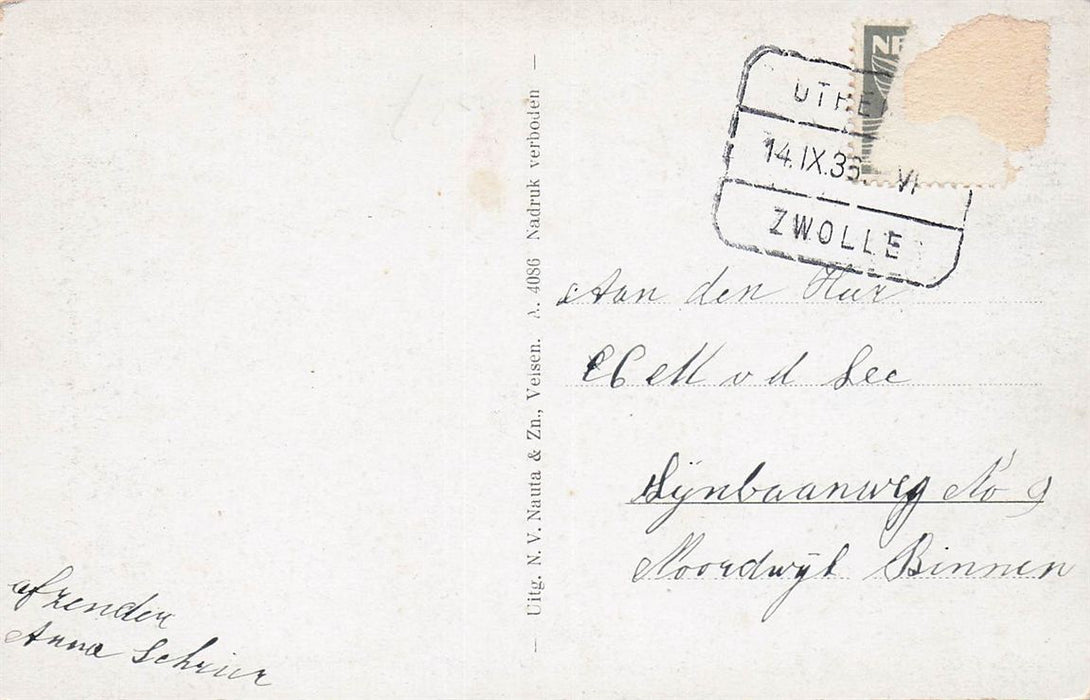 NE
UTRE
14.IX.36. VI
ZWOLLE
Uitg. N. V. Nauta & Zn., Velsen. A. 4086 Nadruk verboden
Aan den Heer
v d
Lijnbaanweg No 9
Noordwijk Binnen
afzender
Anna Schrier